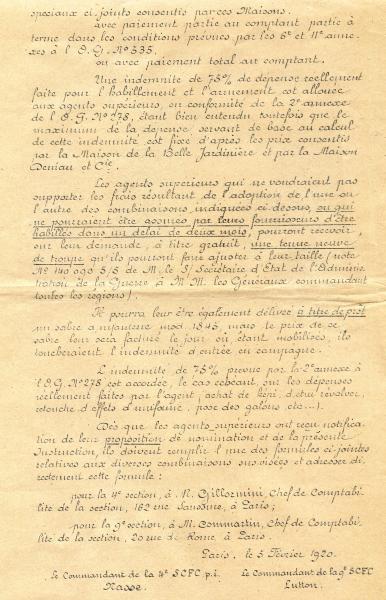 spéciaux ci-joints consentis par ces Maisons.
avec paiement partie au comptant partie à
terme dans les conditions prévues par les 6e et 11e anne-
xes à l'O.G. No 535.
ou avec paiement total au comptant.
Une indemnité de 75% de dépense réellement
faite pour l'habillement et l'armement est allouée
aux agents supérieurs, en conformité de la 2e annexe
de l'O.G. No 278, étant bien entendu toutefois que le
maximum de la dépense servant de base au calcul
de cette indemnité est fixé d'après les prix consentis
par la Maison de la Belle Jardinière et par la Maison
Deniau et Cie.
Les agents supérieurs qui ne voudraient pas
supporter les frais résultant de l'adoption de l'une ou
l'autre des combinaisons indiquées ci-dessus, ou qui
ne pourraient être assurés par leurs fournisseurs d'être
habillés dans un délai de deux mois, pourront recevoir,
sur leur demande, à titre gratuit, une tenue neuve
de troupe qu'ils pourront faire ajuster à leur taille (note
No 140.090 5/5 de M. le S/Secrétaire d'Etat de l'Adminis-
tration de la Guerre à M.M. les Généraux commandant
toutes les régions).
Il pourra leur être également délivré à titre de prêt
un sabre d'adjudant mod. 1845, mais le prix de ce
sabre leur sera facturé le jour où, étant mobilisés, ils
toucheraient l'indemnité d'entrée en campagne.
L'indemnité de 75% prévue par la 2e annexe à
l'O.G. No 278 est accordée, le cas échéant, sur les dépenses
réellement faites par l'agent, achat de képi, d'étui revolver,
retouche d'effets d'uniforme, pose des galons, etc...).
Dès que les agents supérieurs ont reçu notifica-
tion de leur proposition de nomination et de la présente
Instruction, ils doivent remplir l'une des formules ci-jointes
relatives aux diverses combinaisons susvisées et adresser di-
rectement cette formule:
pour la 4e section, à M. Chef de Comptabi-
lité de la section, 162 rue à Paris;
pour la 9e section, à M. Commartin, Chef de Comptabi-
lité de la section, 20 rue de Rome, à Paris.
Paris, le 5 Février 1920.
Le Commandant de la 4e SCFC p.i.
Le Commandant de la 9e SCFC
Nasse.
Lutton.